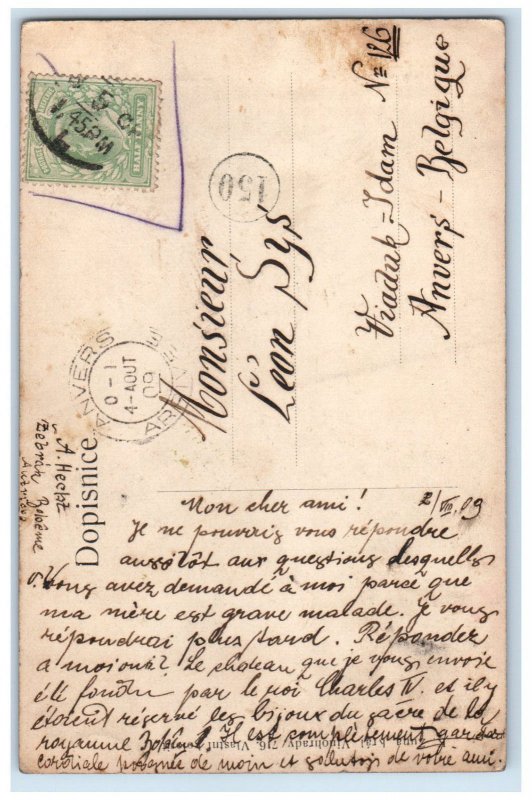 HALF PENNY
45PM
ANVERS
0-1
4-AOUT
09
150
Monsieur
Léon Sys
Viaduk-Idam No 126
Anvers - Belgique
Dopisnice.
A. Hecht
Žebrák Bohême
Autriche
Mon cher ami! 2/VIII.09
Je ne pourris vous répondre
aussitôt aux questions desquelles
Vous avez demandé à moi parce que
ma mère est grave malade. Je vous
répondrai plus tard. Réponder
a moi Le chateau que je vous envoie
été par le roi Charles IV. et il y
étaient réservé les bijoux du de la
royaume Il est complètement
cordiale poignée de main et salutois de votre ami.
Vinohrady 716